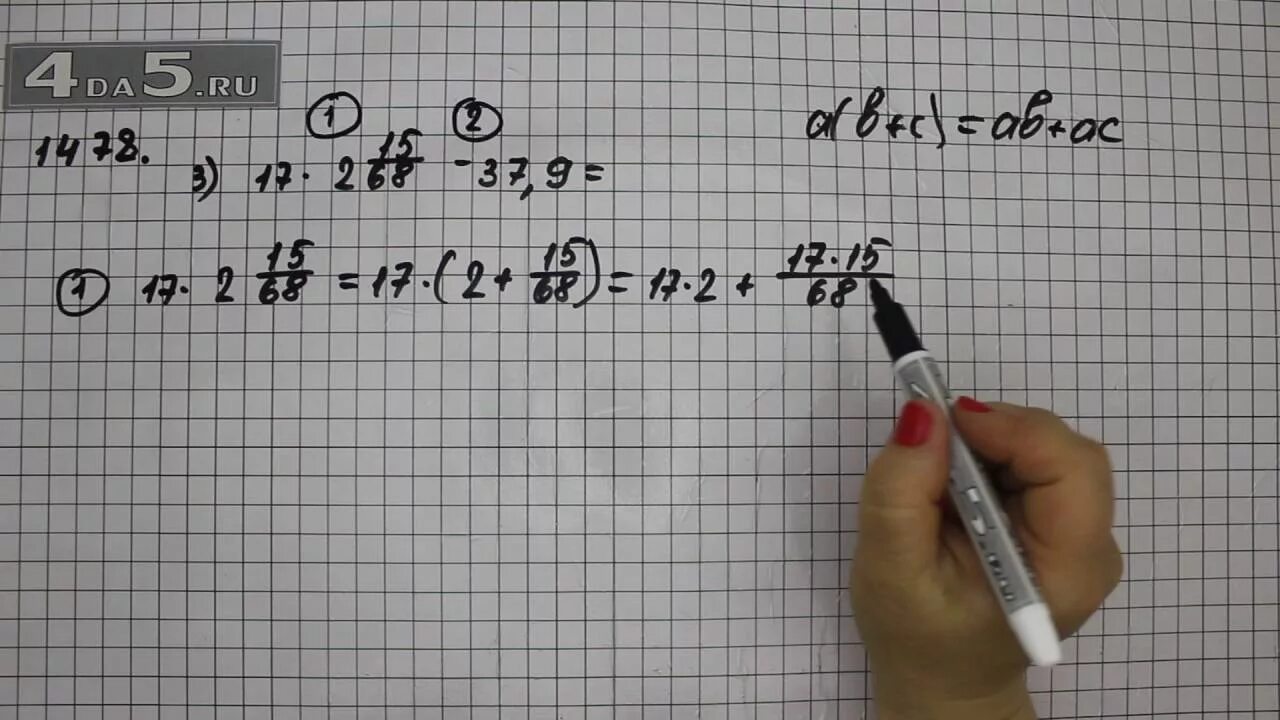 4DA5.RU
1478.
① ②
3) 17 · 2 15/68 - 37,9 =
a(b+c) = ab+ac
① 17 · 2 15/68 = 17 · (2 + 15/68) = 17 · 2 + 17 · 15/68